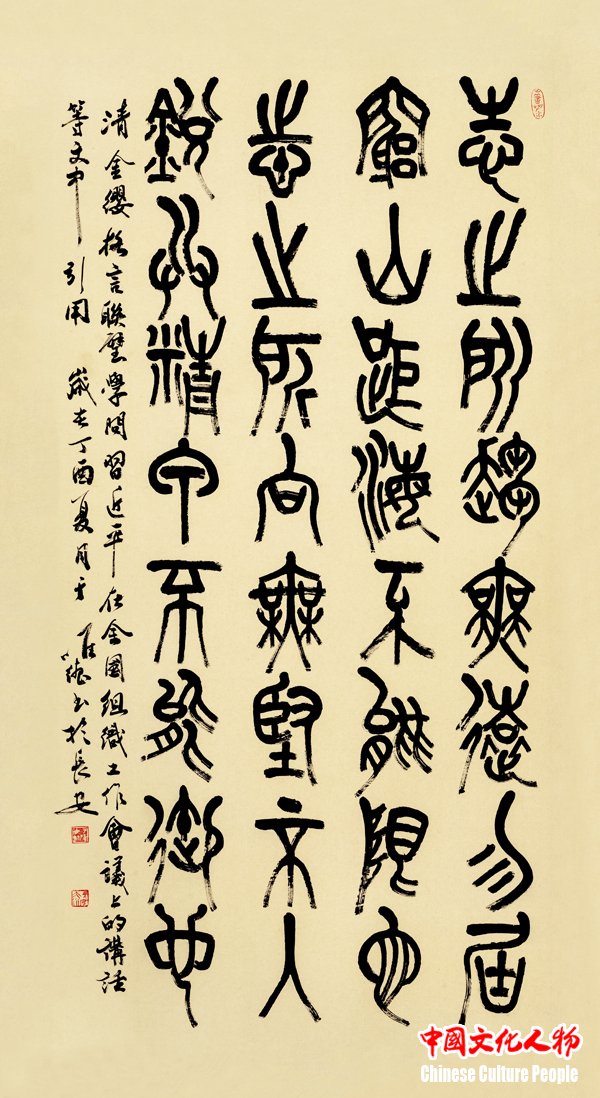 志之所趨無遠勿届
窮山距海不能限也
志之所向無堅不入
銳兵精甲不能御也
清金纓格言聯璧學問習近平在全國組織工作會議上的講話
等文中引用 歲在丁酉夏月 書於長安
中國文化人物
Chinese Culture People